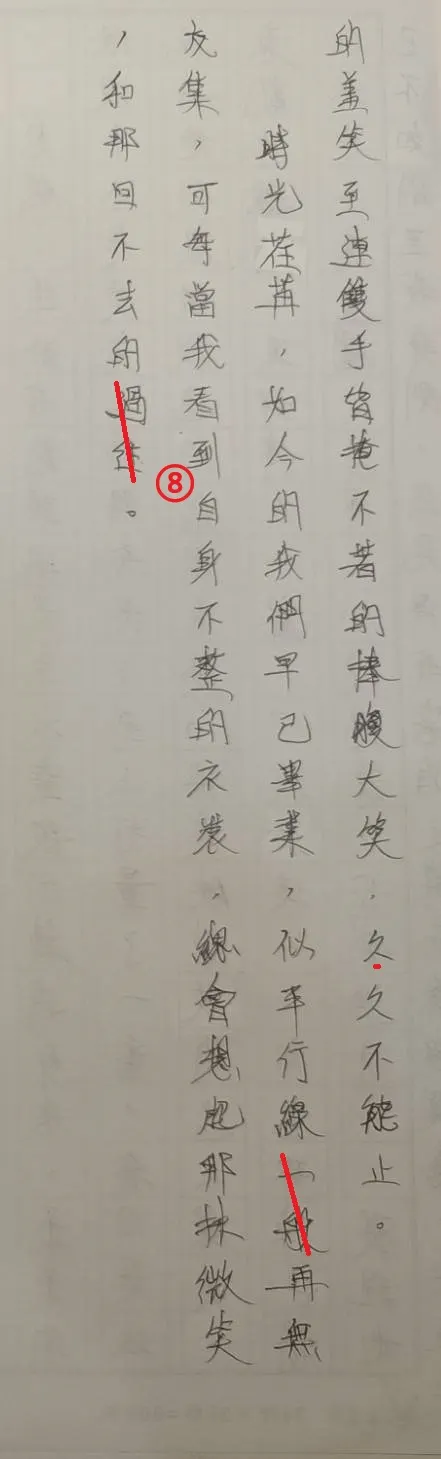 的羞笑至連雙手皆掩不著的捧腹大笑,久久不能止。
時光荏苒,如今的我們早已畢業,似平行線一般再無
交集,可每當我看到自身不整的衣裳,總會想起那抹微笑
,和那回不去的過往。
⑧